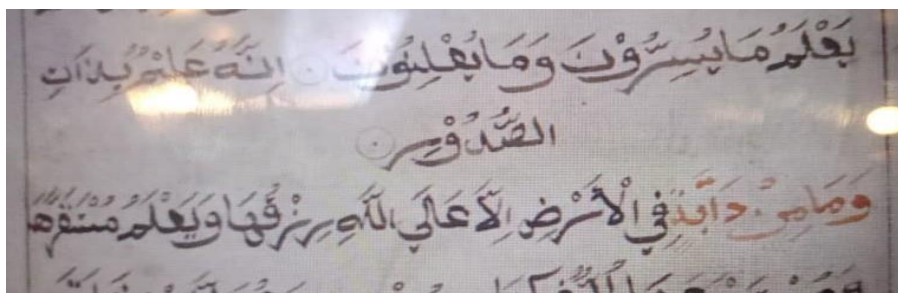 يَعْلَمُ مَا يُسِرُّوْنَ وَمَا يُعْلِنُوْنَ ۝ اِنَّهُ عَلِيْمٌ بِذَاتِ
الصُّدُوْرِ ۝
وَمَا مِنْ دَابَّةٍ فِي الْأَرْضِ اِلَّا عَلَي اللّٰهِ رِزْقُهَا وَيَعْلَمُ مُسْتَقَرَّهَا